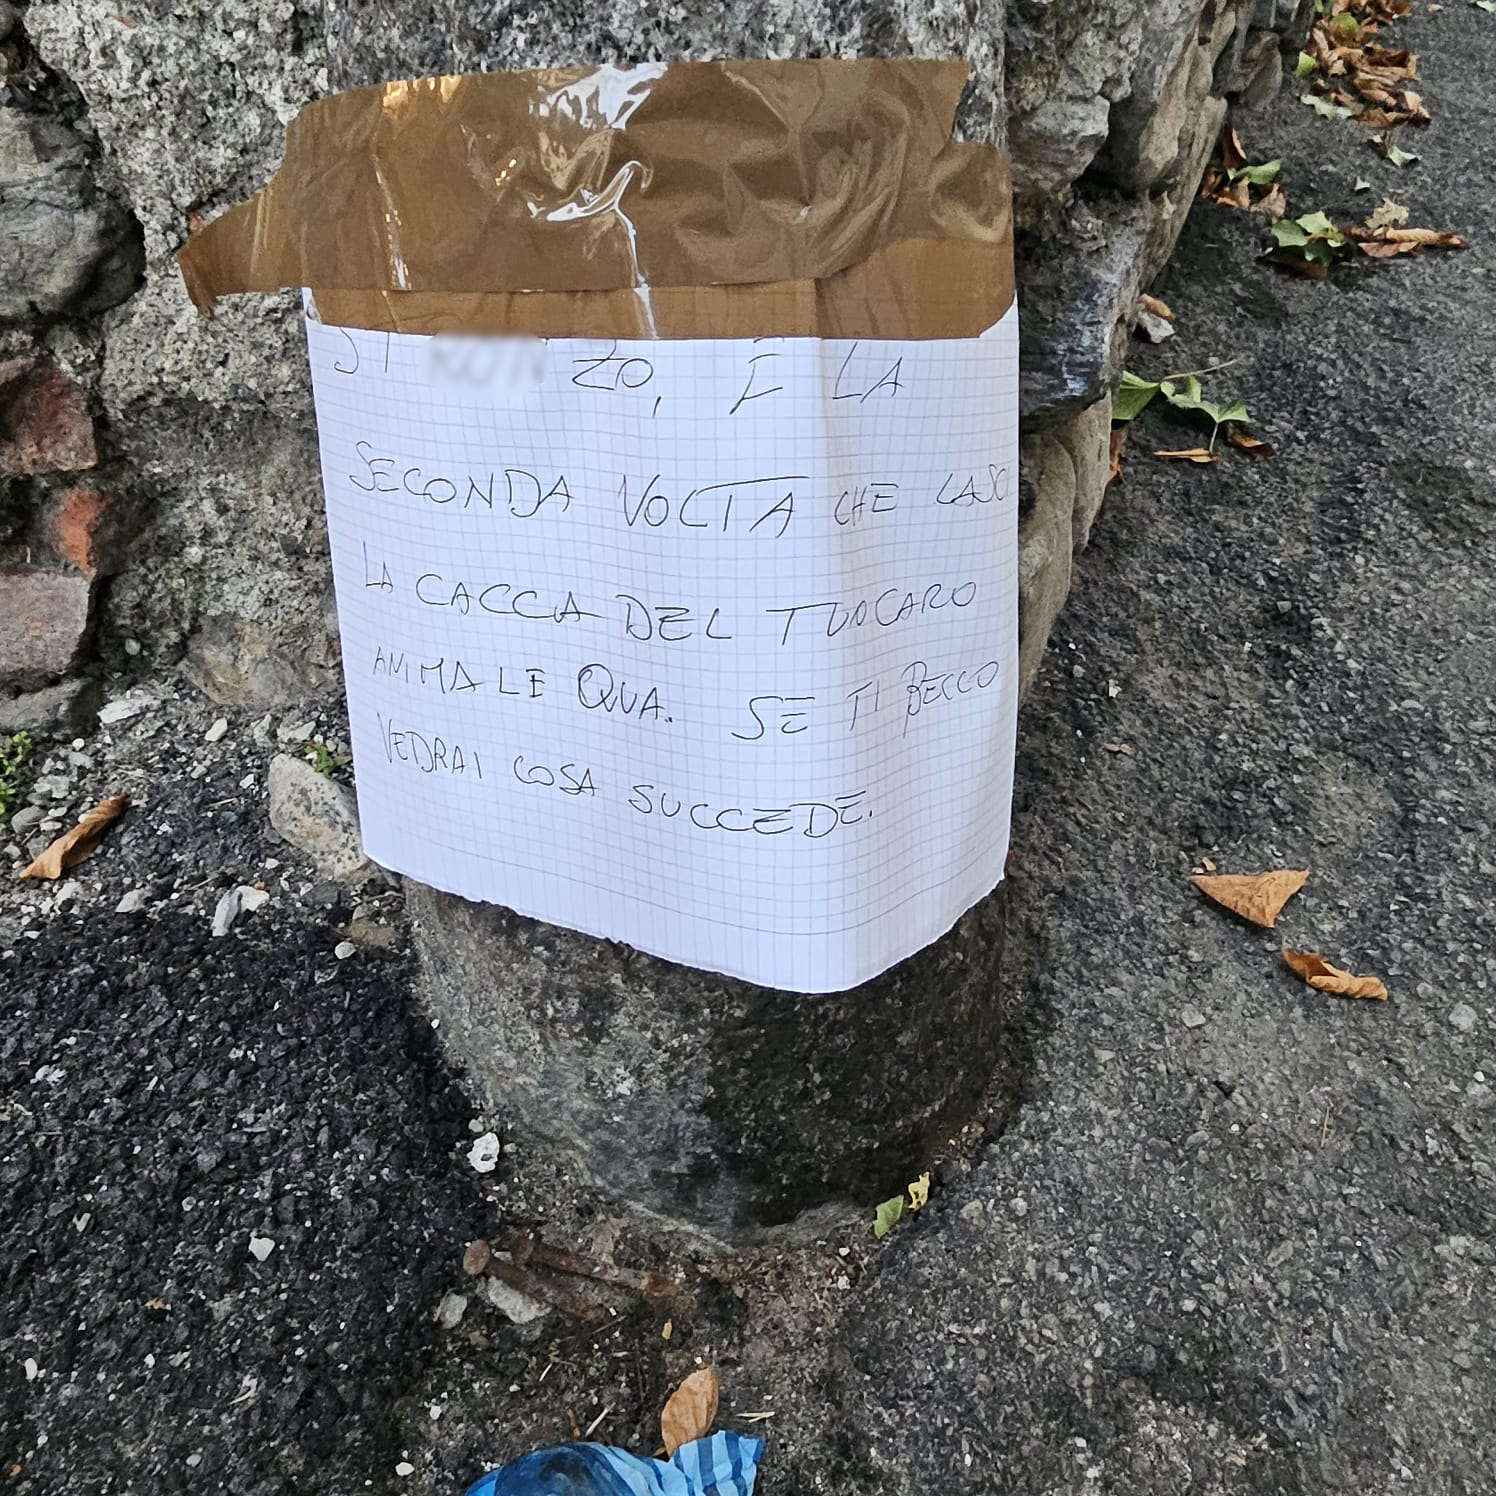 ST RONZO, È LA
SECONDA VOLTA CHE LASCI
LA CACCA DEL TUO CARO
ANIMALE QUA. SE TI BECCO
VEDRAI COSA SUCCEDE.